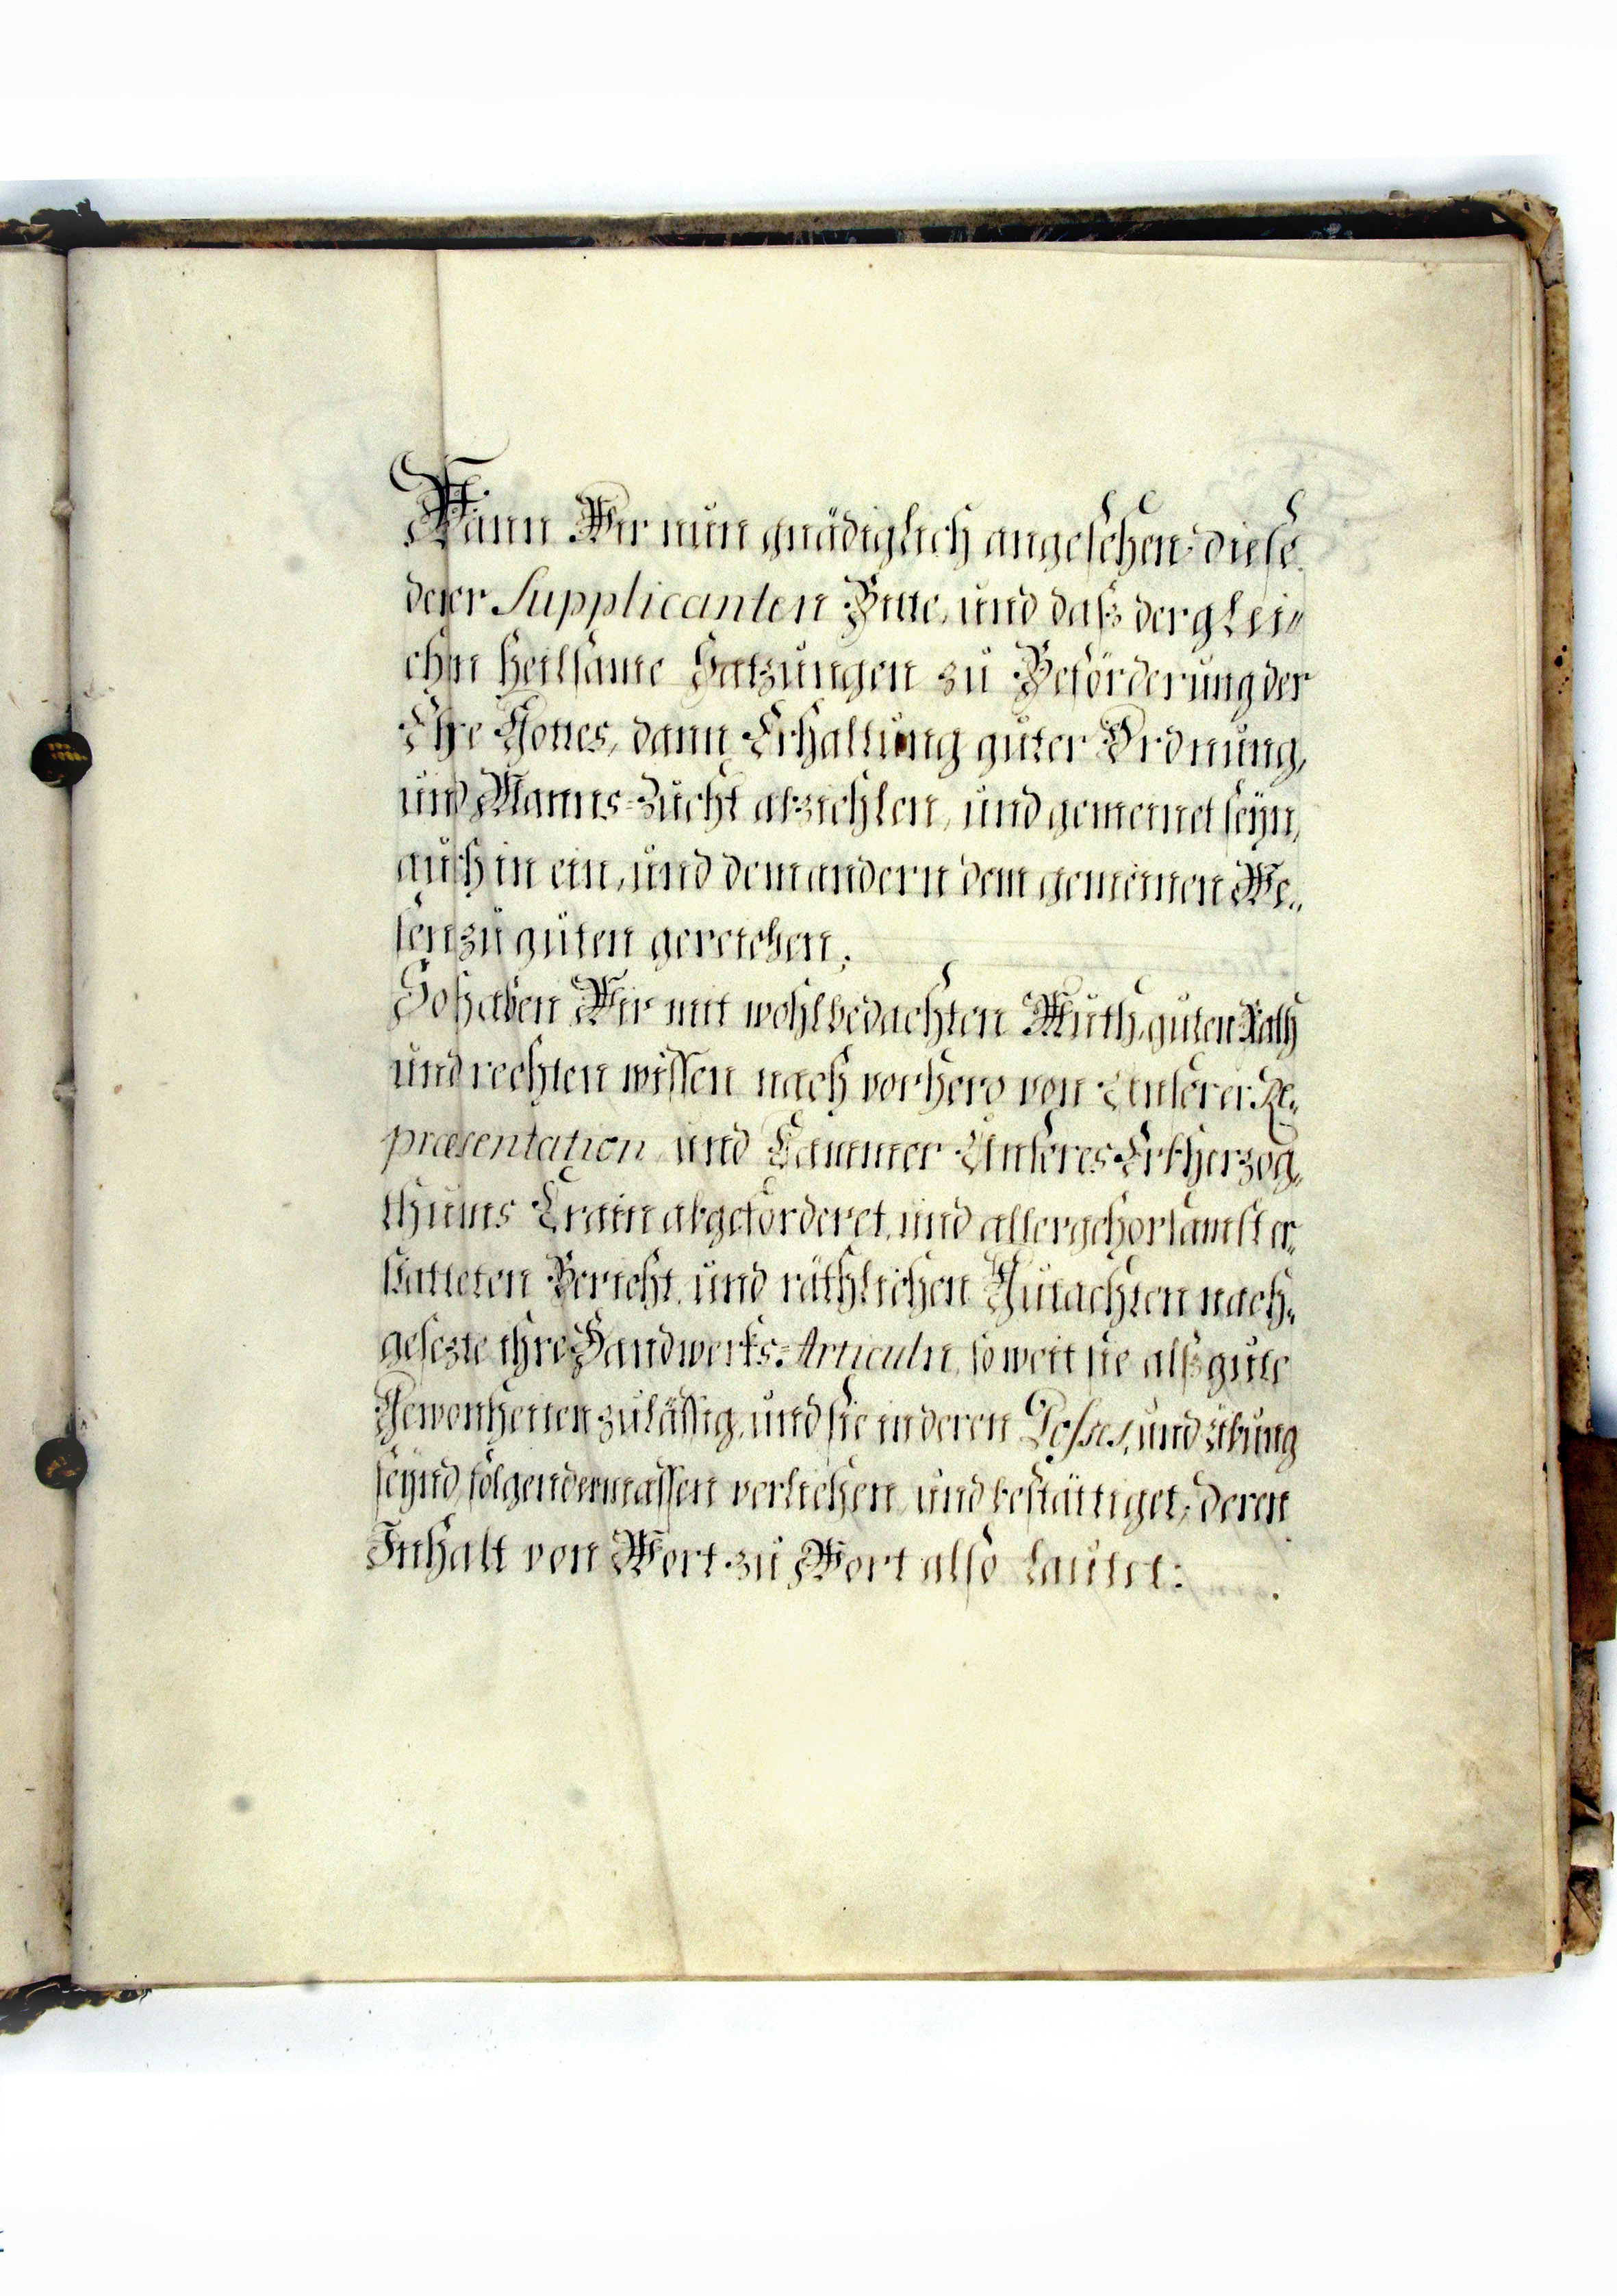 Wann Wir nun gnädiglich angesehen diese
derer Supplicanten Bitte, und daß derglei„
chen heilsame Satzungen zu Beförderung der
Ehre Gottes, dann Erhaltung guter Ordnung,
und Manns-Zucht abziehlen, und gemeinet seyn,
auch in ein, und dem andern dem gemeinen We„
sen zu guten gereichen;
So haben Wir mit wohlbedachten Muth, guten Rath
und rechten wissen nach vorhero von Unserer Re„
præsentation und Cammer Unseres Erbherzog„
thums Crain abgeforderet, und allergehorsamst er„
statteten Bericht, und räthlichen Gutachten nach„
gesezte ihre Handwerks-Articuln, so weit sie alß gute
Gewonheiten zuläßig, und sie in deren Posses, und übung
seynd, folgendermassen verliehen, und bestättiget; deren
Inhalt von Wort zu Wort also lautet: